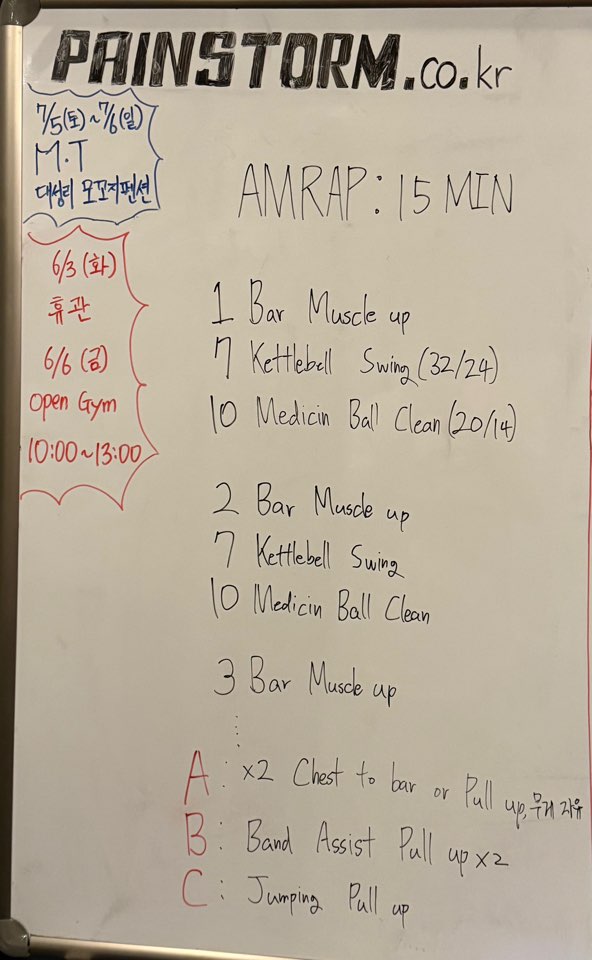 PAINSTORM.co.kr
7/5(토)~7/6(일)
M.T
대성리 모꼬지펜션
6/3 (화)
휴관
6/6 (금)
Open Gym
10:00~13:00
AMRAP: 15 MIN
1 Bar Muscle up
7 Kettlebell Swing (32/24)
10 Medicin Ball Clean (20/14)
2 Bar Muscle up
7 Kettlebell Swing
10 Medicin Ball Clean
3 Bar Muscle up
⋮
A: x2 Chest to bar or Pull up, 무게 자유
B: Band Assist Pull up x2
C: Jumping Pull up